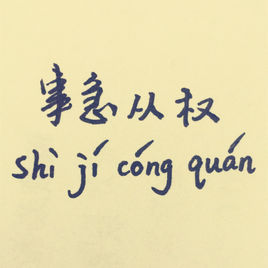 事急从权
shì jí cóng quán